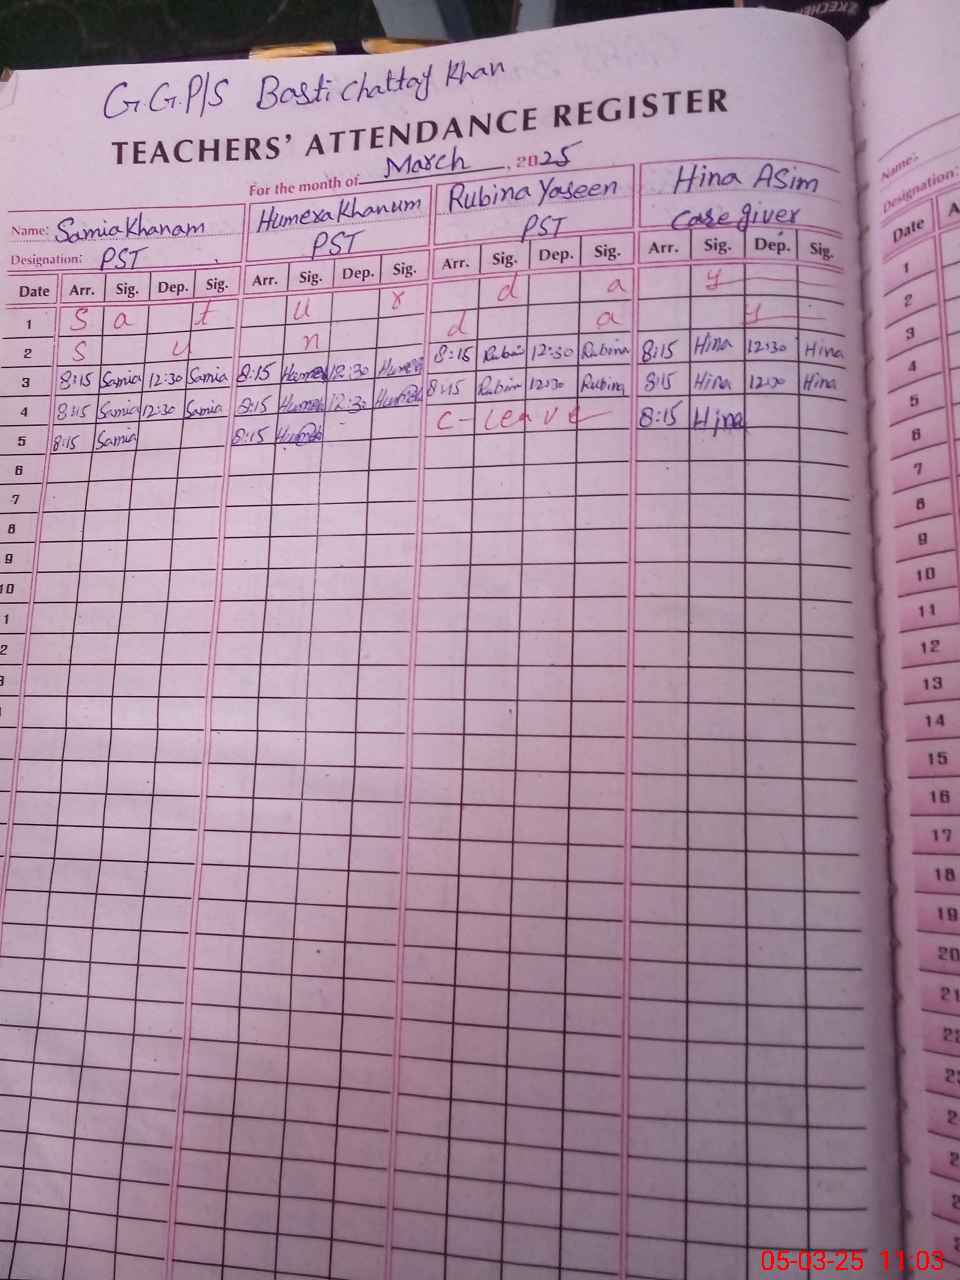 SKECHER
G.G.P/S Basti Chattay Khan
TEACHERS' ATTENDANCE REGISTER
For the month of March, 2025
Name: Samia Khanam Humera Khanum Rubina Yaseen Hina Asim
Designation: PST PST PST Care giver
Date Arr. Sig. Dep. Sig. Arr. Sig. Dep. Sig. Arr. Sig. Dep. Sig. Arr. Sig. Dep. Sig.
1 S a t u r d a y
2 S u n d a y
3 8:15 Samia 12:30 Samia 8:15 Humera 12:30 Humera 8:15 Rubina 12:30 Rubina 8:15 Hina 12:30 Hina
4 8:15 Samia 12:30 Samia 8:15 Humera 12:30 Humera 8:15 Rubina 12:30 Rubina 8:15 Hina 12:30 Hina
5 8:15 Samia 8:15 Humera C-Leave 8:15 Hina
6
7
8
9
10
1
2
3
Name:
Designation:
Date A
1
2
3
4
5
6
7
8
9
10
11
12
13
14
15
16
17
18
19
20
21
22
2
2
2
2
05-03-25 11:03